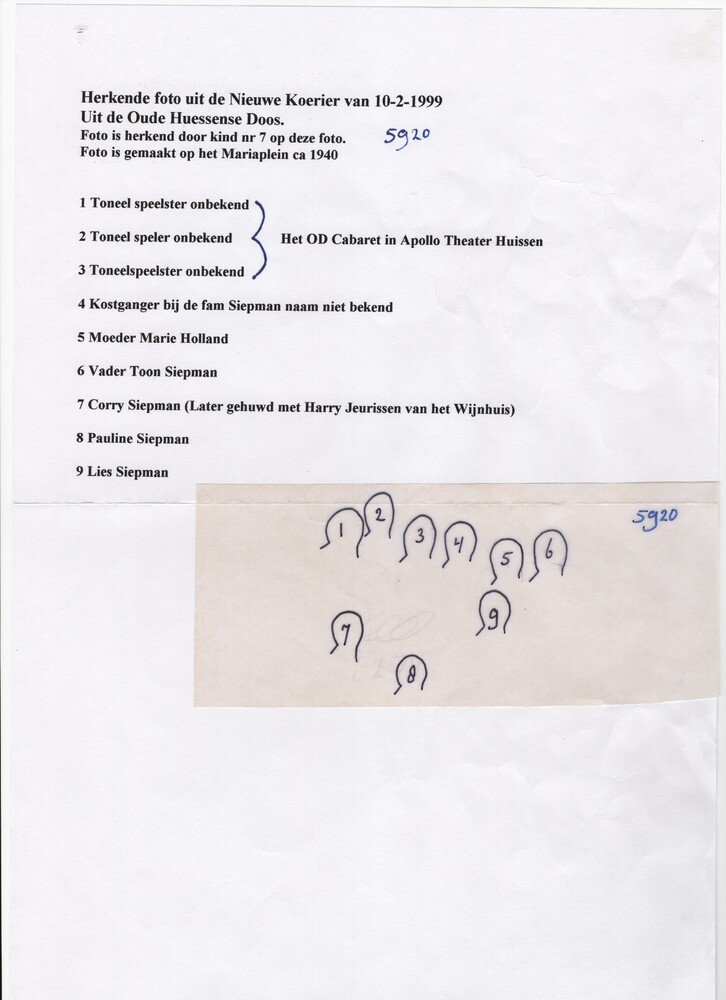 Herkende foto uit de Nieuwe Koerier van 10-2-1999
Uit de Oude Huessense Doos.
Foto is herkend door kind nr 7 op deze foto. 5920
Foto is gemaakt op het Mariaplein ca 1940
1 Toneel speelster onbekend
2 Toneel speler onbekend Het OD Cabaret in Apollo Theater Huissen
3 Toneelspeelster onbekend
4 Kostganger bij de fam Siepman naam niet bekend
5 Moeder Marie Holland
6 Vader Toon Siepman
7 Corry Siepman (Later gehuwd met Harry Jeurissen van het Wijnhuis)
8 Pauline Siepman
9 Lies Siepman
5920
1 2 3 4 5 6
7 9
8